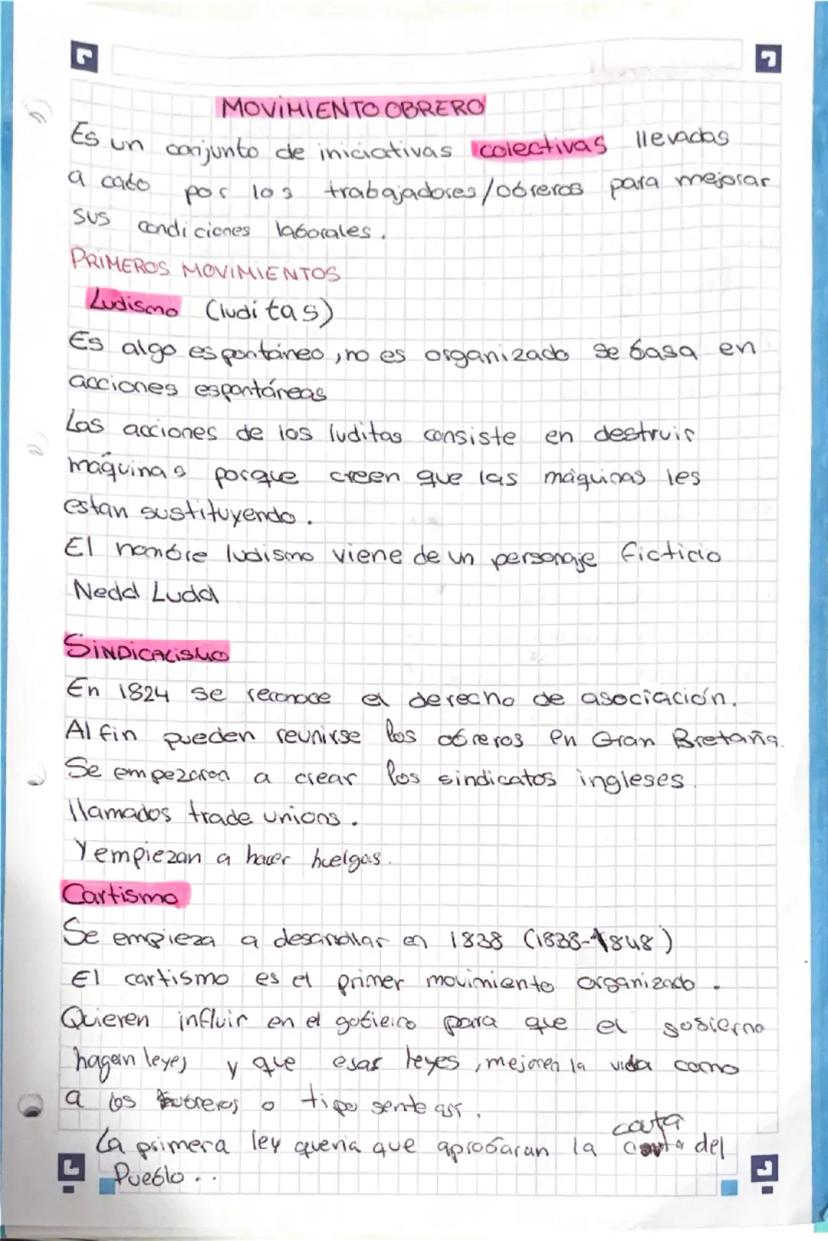 MOVIMIENTO OBRERO
Es un conjunto de iniciativas colectivas llevadas
a cabo por los trabajadores/obreros para mejorar
sus condiciones laborales.
PRIMEROS MOVIMIENTOS
Ludismo (luditas)
Es algo espontáneo, no es organizado se basa en
acciones espontáneas
Las acciones de los luditas consiste en destruir
máquinas porque creen que las máquinas les
estan sustituyendo.
El nombre ludismo viene de un personaje ficticio
Nedd Ludd
SINDICALISMO
En 1824 se reconoce el derecho de asociación.
Al fin pueden reunirse los obreros en Gran Bretaña.
Se empezaron a crear los sindicatos ingleses
llamados trade unions.
Y empiezan a hacer huelgas.
Cartismo
Se empieza a desarrollar en 1838 (1838-1848)
El cartismo es el primer movimiento organizado.
Quieren influir en el gobierno para que el gobierno
hagan leyes y que esas leyes, mejoren la vida como
a los obreros o tipo gente así.
La primera ley queria que aprobaran la carta del
Pueblo..